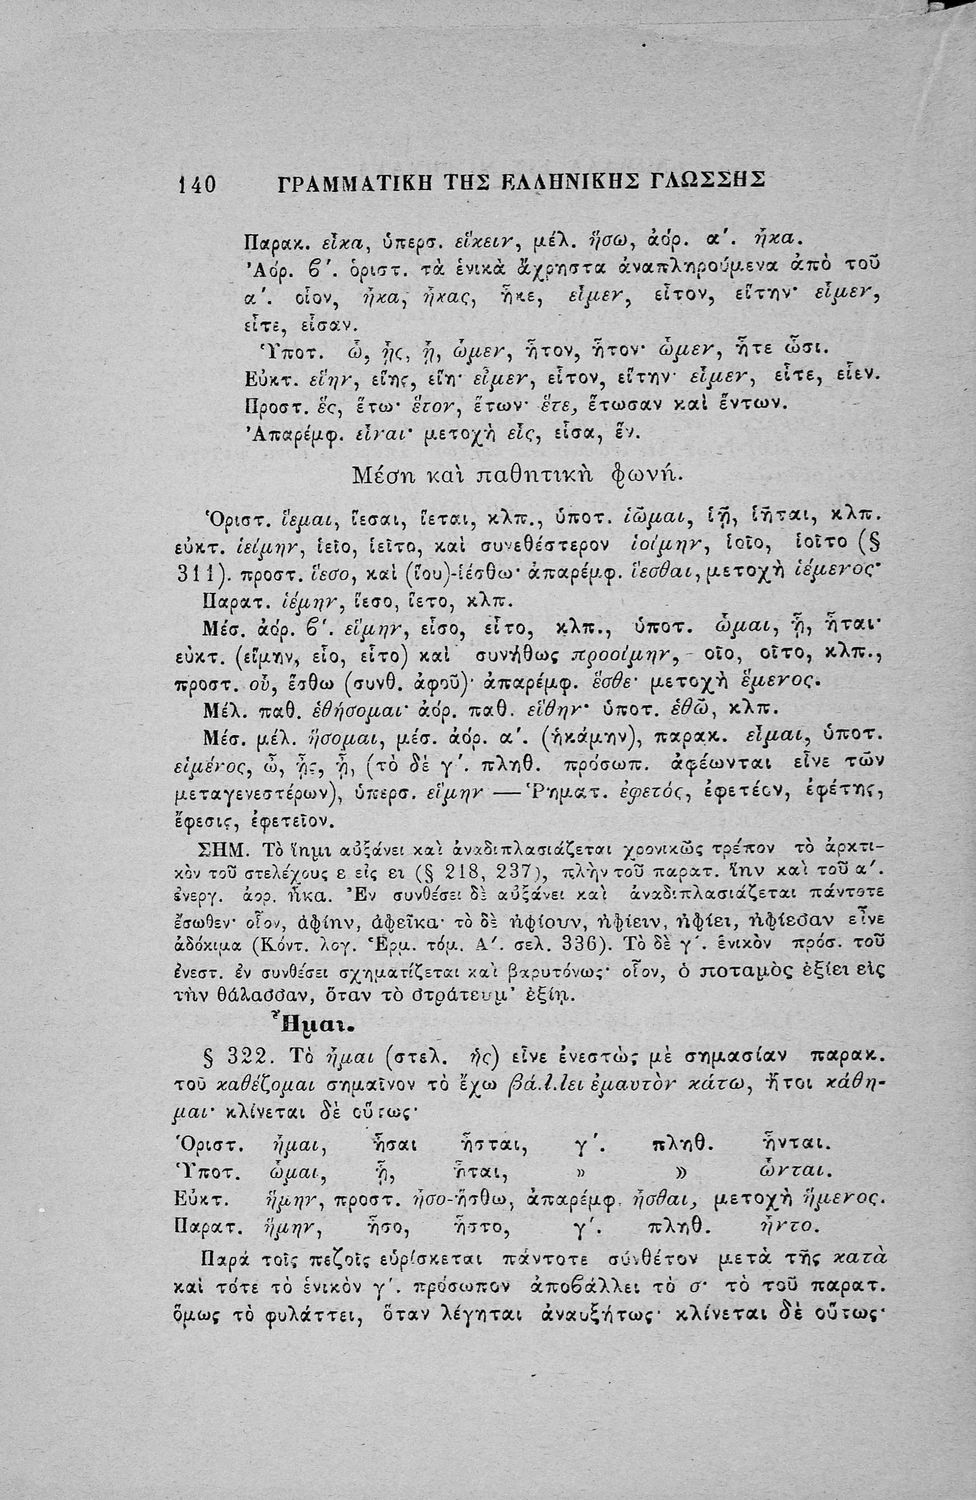 140 ΓΡΑΜΜΑΤΙΚΗ ΤΗΣ ΕΛΛΗΝΙΚΗΣ ΓΛΩΣΣΗΣ
Παρακ. εἷκα, ὑπερσ. εἵκειν, μέλ. ἥσω, ἀόρ. α΄. ἧκα.
Ἀόρ. ϐ΄. ὁριστ. τὰ ἑνικὰ ἄχρηστα ἀναπληρούμενα ἀπὸ τοῦ
α΄. οἷον, ἧκα, ἧκας, ἧκε, εἷμεν, εἷτον, εἵτην· εἷμεν,
εἷτε, εἷσαν.
Ὑποτ. ὧ, ᾗς, ᾗ, ὧμεν, ἧτον, ἧτον· ὧμεν, ἧτε ὧσι.
Εὐκτ. εἵην, εἵης, εἵη· εἷμεν, εἷτον, εἵτην· εἷμεν, εἷτε, εἷεν.
Προστ. ἕς, ἕτω· ἕτον, ἕτων· ἕτε, ἕτωσαν καὶ ἕντων.
Ἀπαρέμφ. εἷναι· μετοχὴ εἷς, εἷσα, ἕν.
Μέση καὶ παθητικὴ φωνή.
Ὁριστ. ἵεμαι, ἵεσαι, ἵεται, κλπ., ὑποτ. ἱῶμαι, ἱῇ, ἱῆται, κλπ.
εὐκτ. ἱείμην, ἱεῖο, ἱεῖτο, καὶ συνεθέστερον ἱοίμην, ἱοῖο, ἱοῖτο (§
311). προστ. ἵεσο, καὶ (ἵου)-ἱέσθω· ἀπαρέμφ. ἵεσθαι, μετοχὴ ἱέμενος·
Παρατ. ἱέμην, ἵεσο, ἵετο, κλπ.
Μέσ. ἀόρ. ϐ΄. εἵμην, εἷσο, εἷτο, κλπ., ὑποτ. ὧμαι, ᾗ, ἧται·
εὐκτ. (εἵμην, εἷο, εἷτο) καὶ συνήθως προοίμην, - οῖο, οῖτο, κλπ.,
προστ. οὗ, ἕσθω (συνθ. ἀφοῦ)· ἀπαρέμφ. ἕσθε· μετοχὴ ἕμενος.
Μέλ. παθ. ἑθήσομαι· ἀόρ. παθ. εἵθην· ὑποτ. ἑθῶ, κλπ.
Μέσ. μέλ. ἥσομαι, μέσ. ἀόρ. α΄. (ἡκάμην), παρακ. εἷμαι, ὑποτ.
εἱμένος, ὦ, ᾖς, ᾖ, (τὸ δὲ γ΄. πληθ. πρόσωπ. ἀφέωνται εἶνε τῶν
μεταγενεστέρων), ὑπερσ. εἵμην — Ῥηματ. ἐφετός, ἐφετέον, ἐφέτης,
ἔφεσις, ἐφετεῖον.
ΣΗΜ. Τὸ ἵημι αὐξάνει καὶ ἀναδιπλασιάζεται χρονικῶς τρέπον τὸ ἀρκτι-
κὸν τοῦ στελέχους ε εἰς ει (§ 218, 237), πλὴν τοῦ παρατ. ἵην καὶ τοῦ α΄.
ἐνεργ. ἀορ. ἧκα. Ἐν συνθέσει δὲ αὐξάνει καὶ ἀναδιπλασιάζεται πάντοτε
ἔσωθεν· οἷον, ἀφίην, ἀφεῖκα· τὸ δὲ ἠφίουν, ἠφίειν, ἠφίει, ἠφίεσαν εἶνε
ἀδόκιμα (Κόντ. λογ. Ἑρμ. τόμ. Α΄. σελ. 336). Τὸ δὲ γ΄. ἑνικὸν πρόσ. τοῦ
ἐνεστ. ἐν συνθέσει σχηματίζεται καὶ βαρυτόνως· οἷον, ὁ ποταμὸς ἐξίει εἰς
τὴν θάλασσαν, ὅταν τὸ στράτευμ' ἐξίῃ.
Ἧμαι.
§ 322. Τὸ ἧμαι (στελ. ἡς) εἶνε ἐνεστὼς μὲ σημασίαν παρακ.
τοῦ καθέζομαι σημαῖνον τὸ ἔχω βάλλει ἐμαυτὸν κάτω, ἤτοι κάθη-
μαι· κλίνεται δὲ οὕτως·
Ὁριστ. ἧμαι, ἧσαι ἧσται, γ΄. πληθ. ἧνται.
Ὑποτ. ὧμαι, ᾗ, ἧται, » » ὧνται.
Εὐκτ. ἥμην, προστ. ἧσο-ἥσθω, ἀπαρέμφ. ἧσθαι, μετοχὴ ἥμενος.
Παρατ. ἥμην, ἧσο, ἧστο, γ΄. πληθ. ἧντο.
Παρὰ τοῖς πεζοῖς εὑρίσκεται πάντοτε σύνθετον μετὰ τῆς κατὰ
καὶ τότε τὸ ἑνικὸν γ΄. πρόσωπον ἀποϐάλλει τὸ σ· τὸ τοῦ παρατ.
ὅμως τὸ φυλάττει, ὅταν λέγηται ἀναυξήτως· κλίνεται δὲ οὕτως·